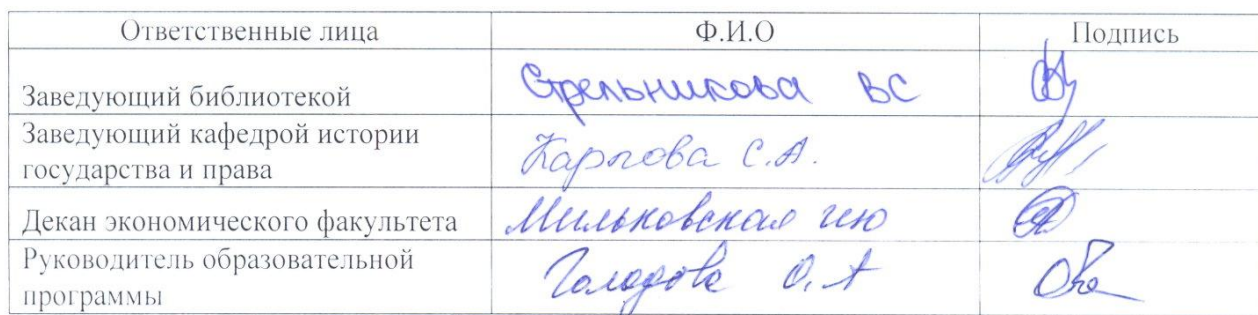 Ответственные лица Ф.И.О Подпись
Заведующий библиотекой Стрельникова ВС
Заведующий кафедрой истории
государства и права Карпова С.А.
Декан экономического факультета Мильковская ИЮ
Руководитель образовательной
программы О.А